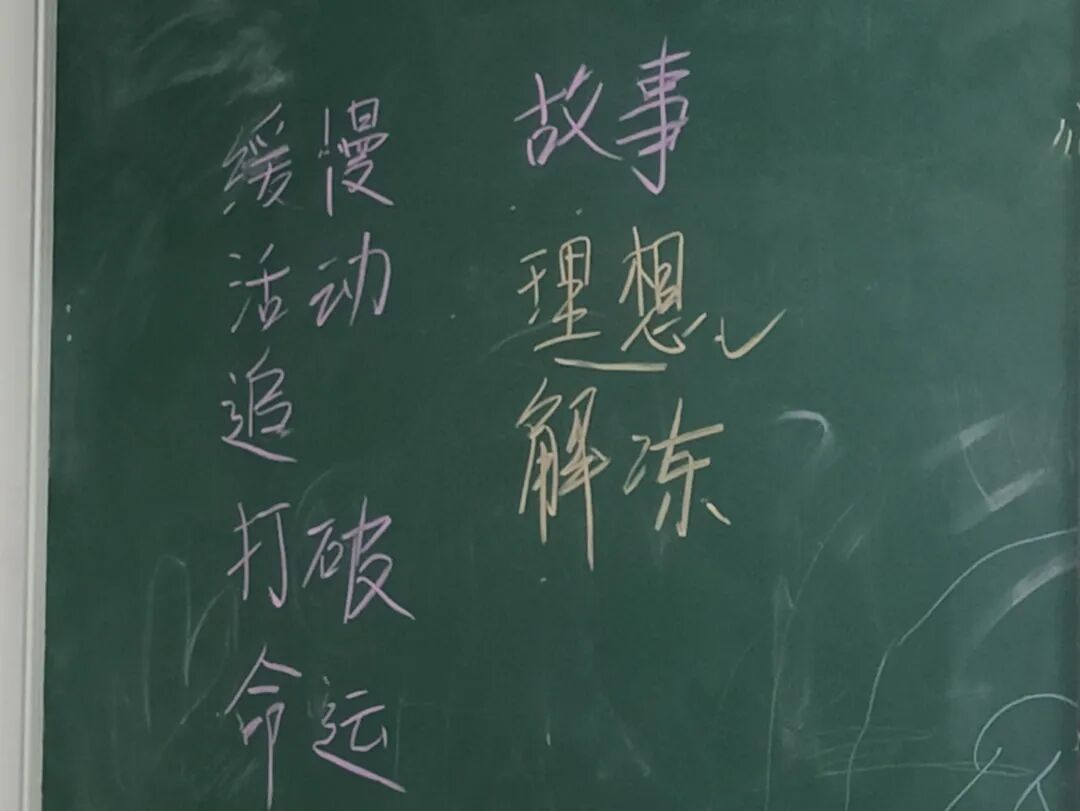 缓慢
活动
追
打破
命运
故事
理想
解冻